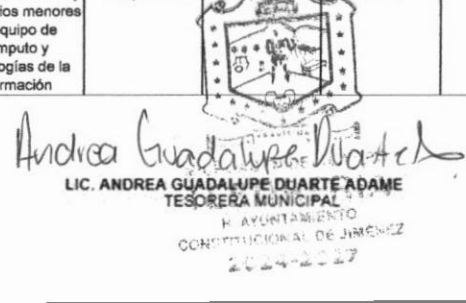 ios menores
quipo de
mputo y
ogías de la
rmación
Andrea Guadalupe Duarte A
LIC. ANDREA GUADALUPE DUARTE ADAME
TESORERA MUNICIPAL
H. AYUNTAMIENTO
CONSTITUCIONAL DE JIMÉNEZ
2024-2027